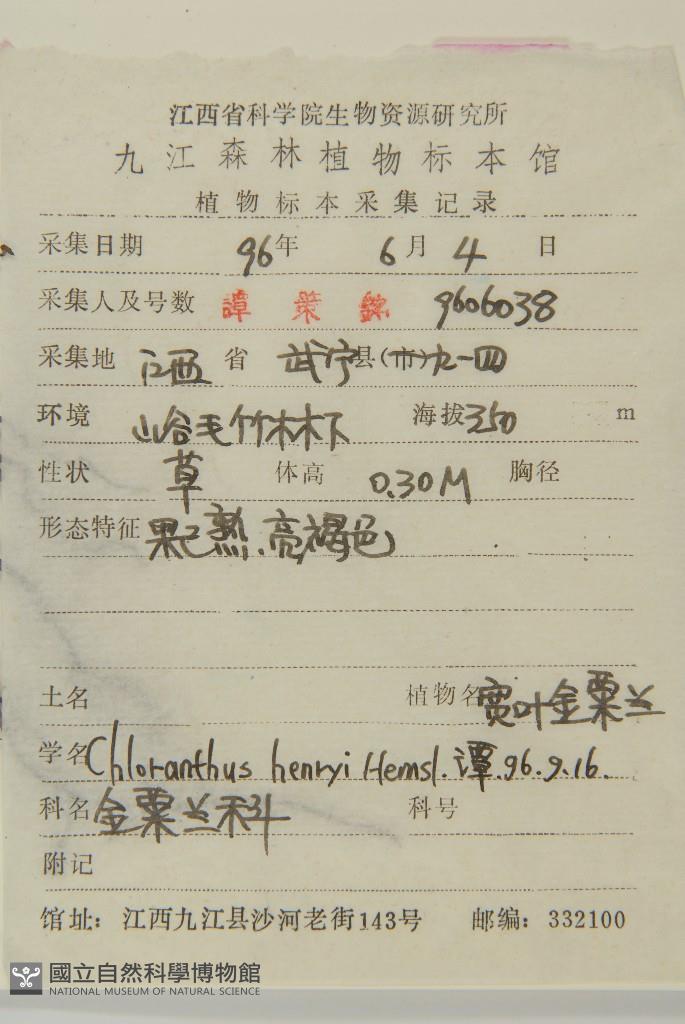 江西省科学院生物资源研究所
九江森林植物标本馆
植物标本采集记录
采集日期 96年 6月 4 日
采集人及号数 譚策銘 9606038
采集地 江西 省 武宁县(市)九一四
环境 山谷毛竹林林下 海拔350 m
性状 草 体高 0.30M 胸径
形态特征 果已熟.亮褐色
土名 植物名 宽叶金粟兰
学名 Chloranthus henryi Hemsl. 譚.96.9.16.
科名 金粟兰科 科号
附记
馆址：江西九江县沙河老街143号 邮编：332100
國立自然科學博物館
NATIONAL MUSEUM OF NATURAL SCIENCE